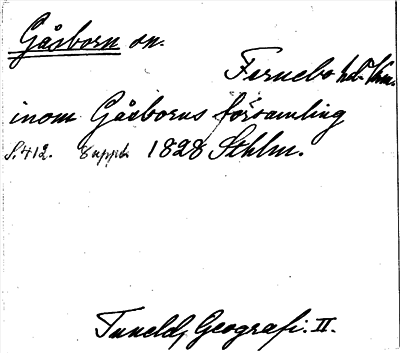 Gåsborn sn.
Fernebo hd. Vrm.
inom Gåsborns församling
S. 412. 8 uppl. 1828 Sthlm.
Tuneld, Geografi. II.